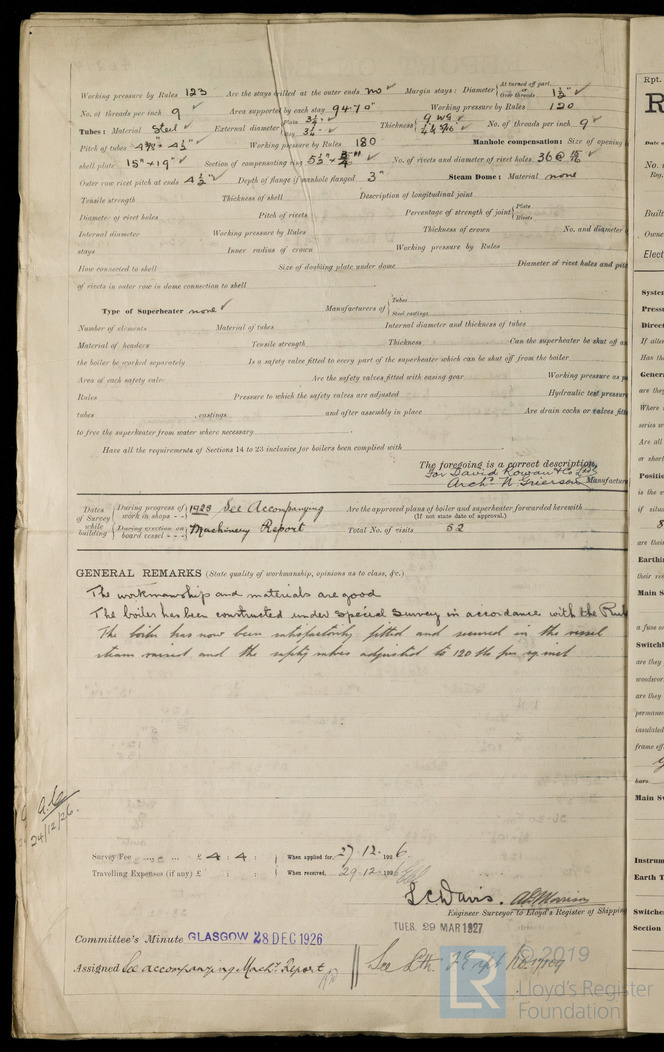 Working pressure by Rules 123 Are the stays drilled at the outer ends no Margin stays: Diameter { At turned off part, or Over threads 1½"
No. of threads per inch 9 Area supported by each stay 94.70" Working pressure by Rules 120
Tubes: Material Steel External diameter { Plain 3¼" Stay 3¼" Thickness { 9 WG No. of threads per inch 9
Pitch of tubes Working pressure by Rules 180 Manhole compensation: Size of opening
shell plate 15" × 19" Section of compensating ring No. of rivets and diameter of rivet holes 36 @
Outer row rivet pitch at ends 4½" Depth of flange if manhole flanged 3" Steam Dome: Material none
Tensile strength Thickness of shell Description of longitudinal joint
Diameter of rivet holes Pitch of rivets Percentage of strength of joint { Plate Rivets
Internal diameter Working pressure by Rules Thickness of crown No. and diameter
stays Inner radius of crown Working pressure by Rules
How connected to shell Size of doubling plate under dome Diameter of rivet holes and
of rivets in outer row in dome connection to shell
Type of Superheater none Manufacturers of { Tubes Steel castings
Number of elements Material of tubes Internal diameter and thickness of tubes
Material of headers Tensile strength Thickness Can the superheater be shut off
the boiler be worked separately Is a safety valve fitted to every part of the superheater which can be shut off from the boiler
Area of each safety valve Are the safety valves fitted with easing gear Working pressure as
Rules Pressure to which the safety valves are adjusted Hydraulic test pressure
tubes , castings and after assembly in place Are drain cocks or valves
to free the superheater from water where necessary
Have all the requirements of Sections 14 to 23 inclusive for boilers been complied with
The foregoing is a correct description,
For David Rowan & Co Ltd
Archd W Grierson Manufacture
Dates of Survey while building { During progress of work in shops - - } 1925 See Accompanying Are the approved plans of boiler and superheater forwarded herewith
(If not state date of approval.)
{ During erection on board vessel - - - } Machinery Report Total No. of visits 52
GENERAL REMARKS (State quality of workmanship, opinions as to class, &c.)
The workmanship and materials are good
The boiler has been constructed under Special Survey in accordance with the
The boiler has now been satisfactorily fitted and secured in the vessel
steam raised and the safety valves adjusted to 120 lbs per sq inch
24/12/26.
Survey Fee ... ... £ 4 : 4 : When applied for, 27.12.1926.
Travelling Expenses (if any) £ : : When received, 29.12.1926
L C Davis. Morrison
Engineer Surveyor to Lloyd's Register of Shipping
TUES. 29 MAR 1927
Committee's Minute GLASGOW 28 DEC 1926
Assigned See accompanying Machy. Report
See Lth.
© 2019
LR
Lloyd's Register
Foundation
Rpt.
R
Date
No.
Reg.
Built
Owne
Elect
System
Pressu
Direct
If alte
Has th
Gener
are they
Where
series w
Are all
or short
Positio
is the
if situa
8
are thei
Earthin
their re
Main S
a fuse or
Switchb
are they
woodwor
are they
permane
insulated
frame eff
bars
Main Sw
Instrum
Earth T
Switches
Section